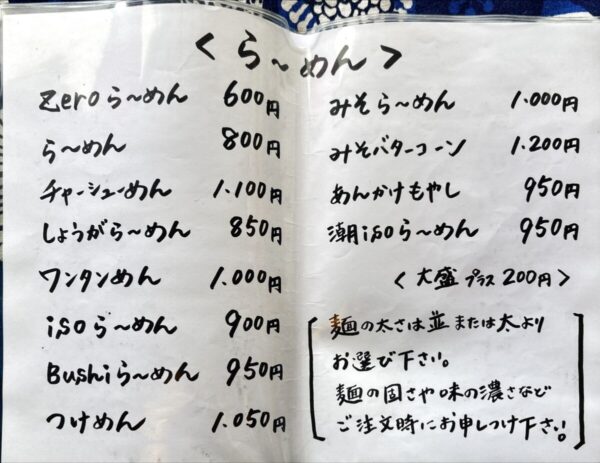 ＜ら〜めん＞
Zeroら〜めん 600円
ら〜めん 800円
チャーシューめん 1.100円
しょうがら〜めん 850円
ワンタンめん 1.000円
isoら〜めん 900円
Bushiら〜めん 950円
つけめん 1.050円
みそら〜めん 1.000円
みそバターコーン 1.200円
あんかけもやし 950円
潮isoら〜めん 950円
＜大盛プラス200円＞
麺の太さは並または太より
お選び下さい。
麺の固さや味の濃さなど
ご注文時にお申しつけ下さい!